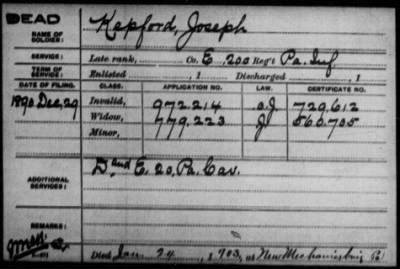 DEAD
NAME OF SOLDIER: Kepford, Joseph
SERVICE: Late rank, Co. E. 200 Reg't Pa. Inf.
TERM OF SERVICE: Enlisted , 1 Discharged , 1
DATE OF FILING. CLASS. APPLICATION NO. LAW. CERTIFICATE NO.
1890 Dec, 29 Invalid, 972.214 a.J 729.612
Widow, 779.223 J. 560.705
Minor,
ADDITIONAL SERVICES: D. and E. 20, Pa. Cav.
REMARKS:
Died Jan. 24, 1903, at New Mechanicsburg Pa